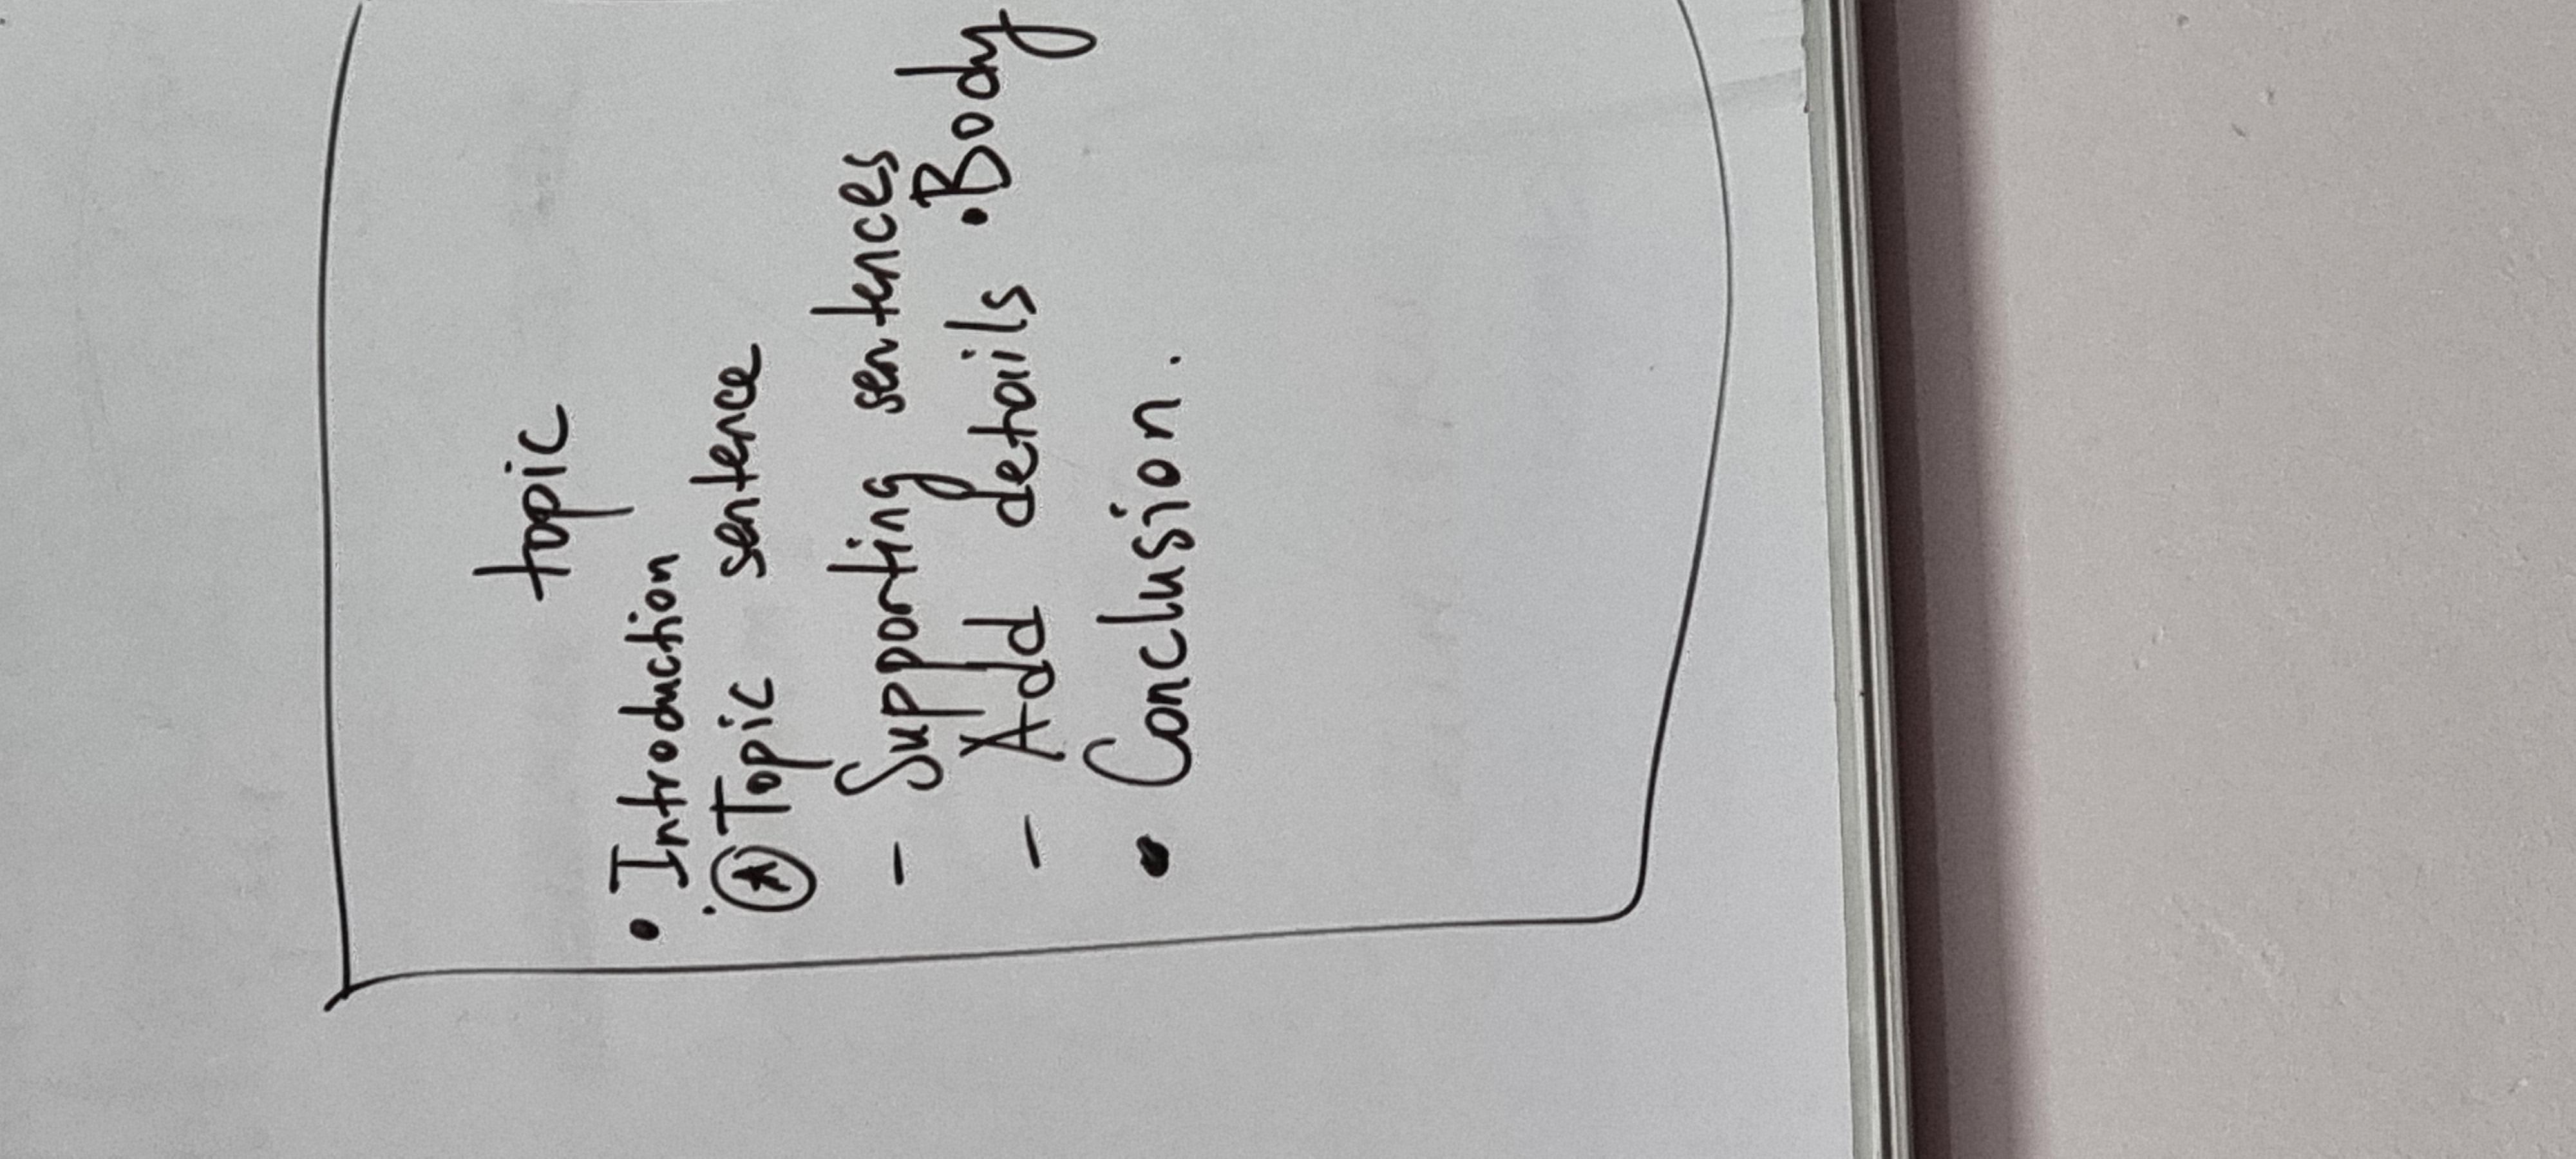 topic
• Introduction
⍟ Topic sentence
– Supporting sentences
– Add details • Body
• Conclusion.